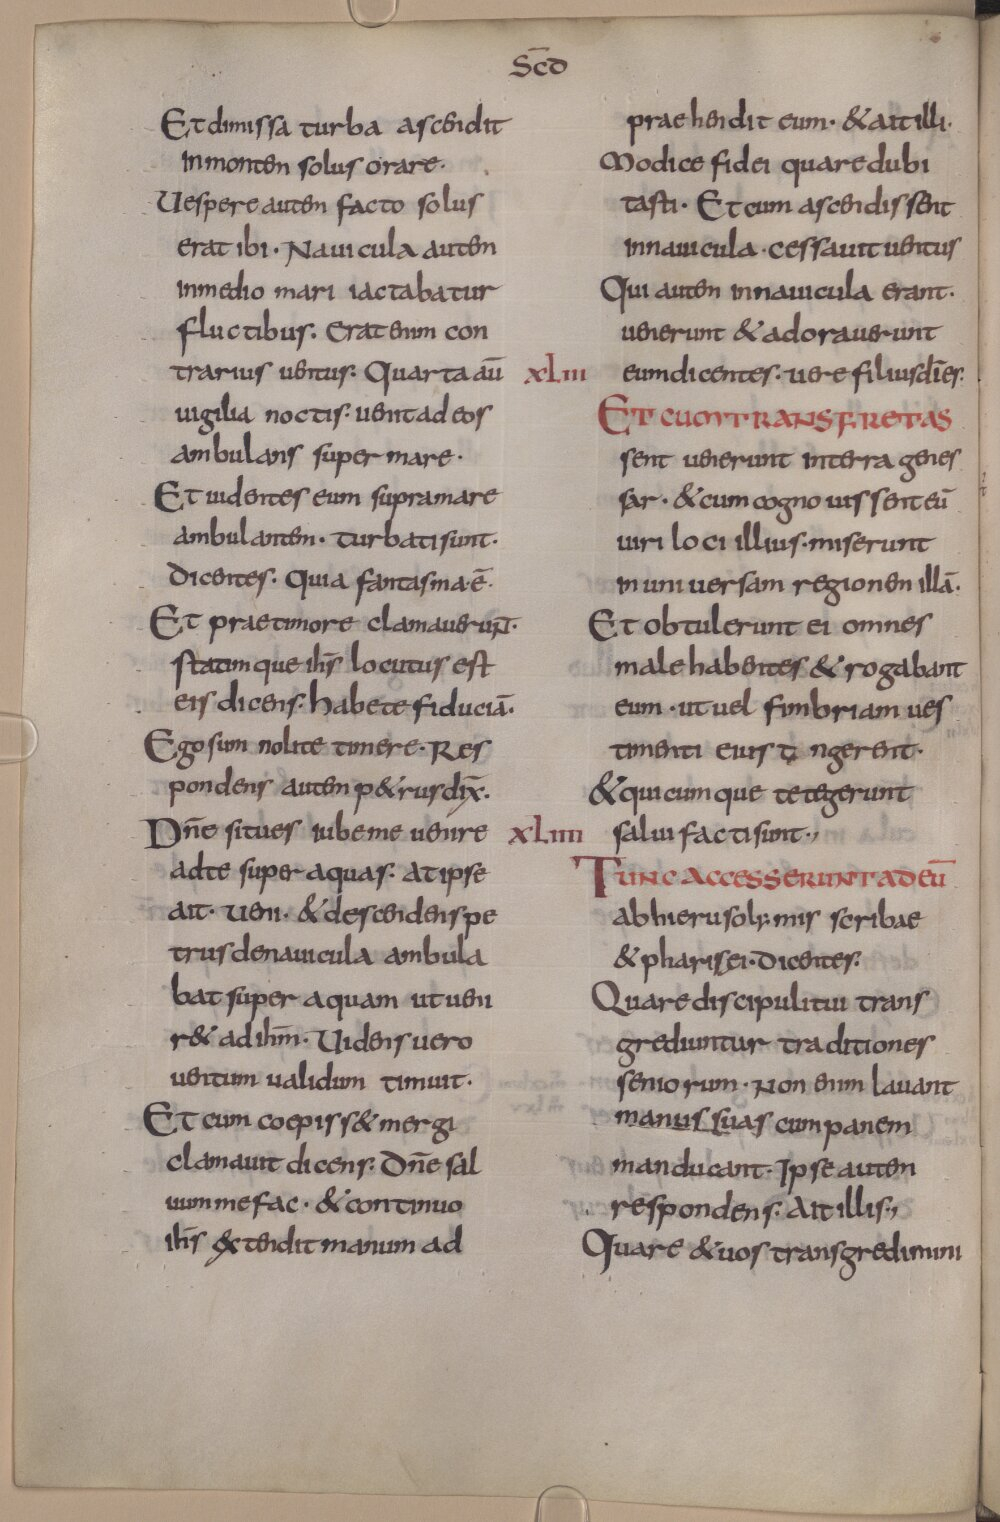 Sc̄d
Et dimissa turba ascendit
in montem solus orare·
Uespere autem facto solus
erat ibi· Nauicula autem
in medio mari iactabatur
fluctibus· Erat enim con
trarius uentus· Quarta aū
uigilia noctis· uenit ad eos
ambulans super mare·
Et uidentes eum supra mare
ambulantem· turbati sunt·
dicentes· Quia fantasma ē·
Et prae timore clamauerunt·
statimque ih̄s locutus est
eis dicens· habete fiduciā·
Ego sum nolite timere· Res
pondens autem p&rus dix̄·
Dn̄e si tu es iube me uenire
ad te super aquas· at ipse
ait· ueni· & descendens pe
trus de nauicula ambula
bat super aquam ut ueni
r& ad ih̄m· Uidens uero
uentum ualidum timuit·
Et cum coepiss& mergi
clamauit dicens· Dn̄e sal
uum me fac· & continuo
ih̄s extendit manum ad
praehendit eum· & ait illi·
Modice fidei quare dubi
tasti· Et cum ascendissent
in nauicula· cessauit uentus
Qui autem in nauicula erant·
uenerunt & adorauerunt
eum dicentes· uere filius dī es·
xLiii Et cum transfretas
sent uenerunt in terra genes
sar· & cum cognouissent eū
uiri loci illius· miserunt
in uniuersam regionem illā·
Et obtulerunt ei omnes
male habentes & rogabant
eum· ut uel fimbriam ues
timenti eius t ngerent·
& quicumque tetegerunt
xLiiii salui facti sunt·,
Tunc accesserunt ad eū
ab hierusolymis scribae
& pharisei· dicentes·
Quare discipuli tui trans
grediuntur traditiones
seniorum· Non enim lauant
manus suas cum panem
manducant· Ipse autem
respondens· Ait illis·,
Quare & uos transgredimini